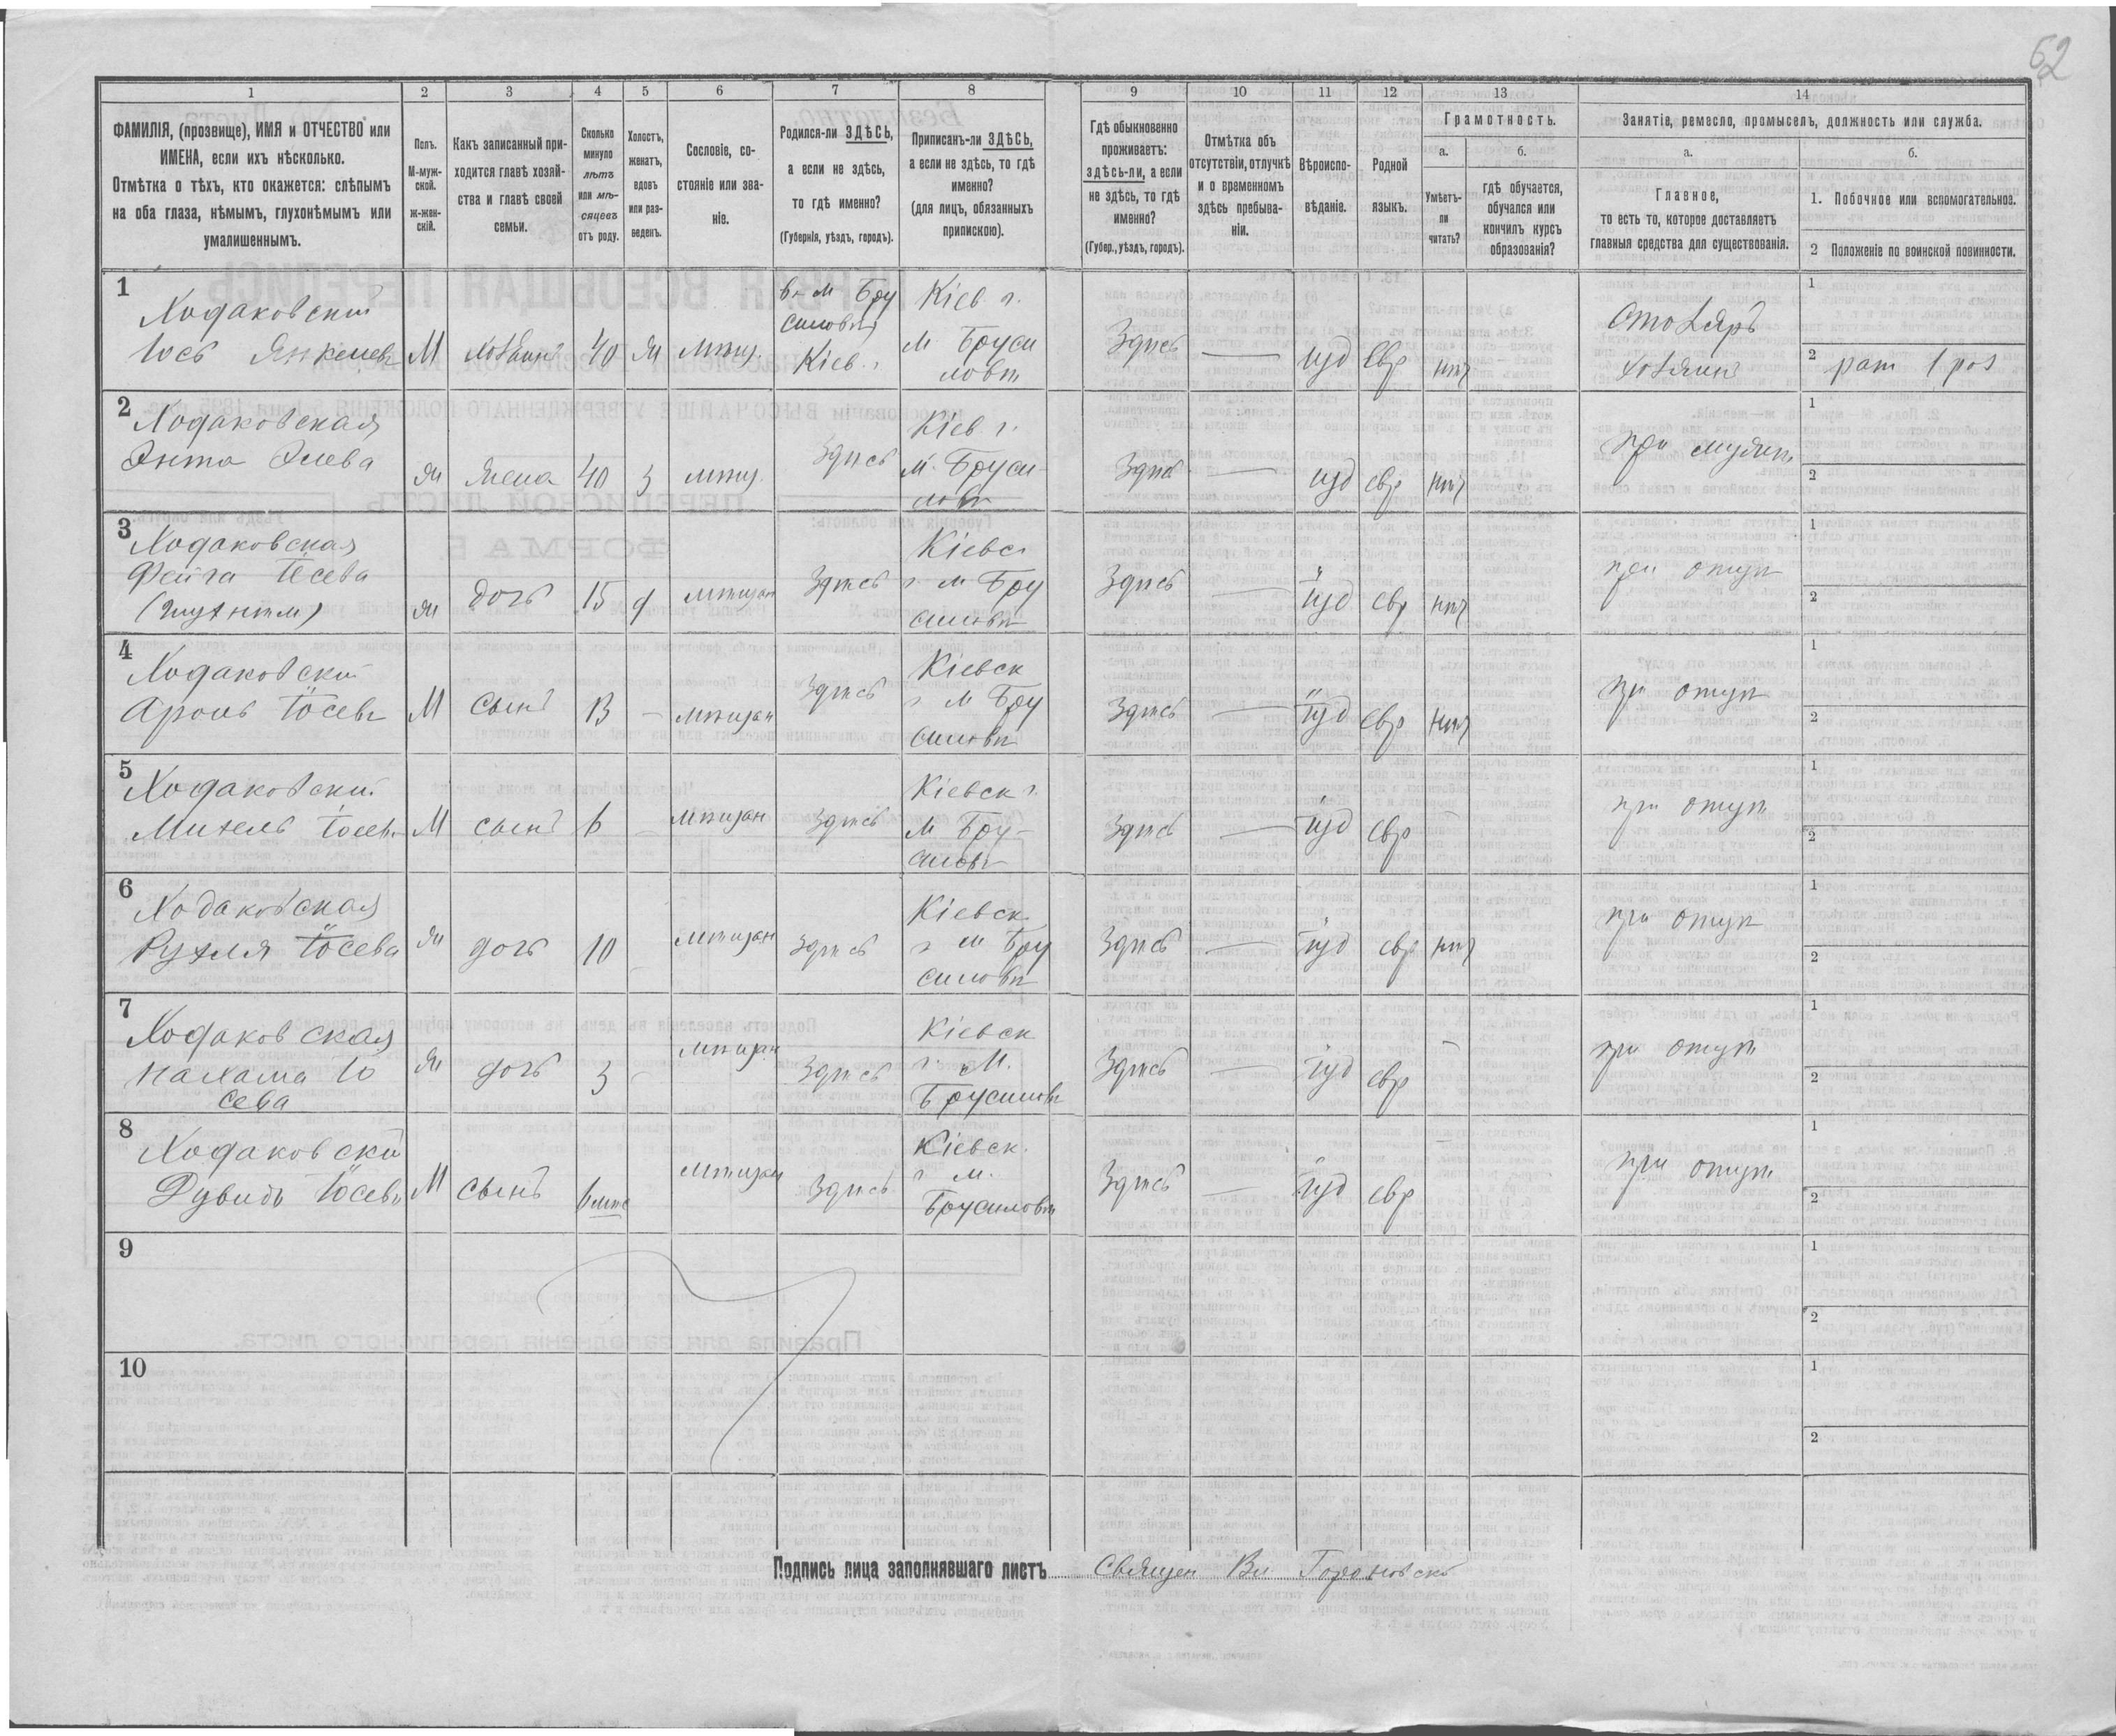 62
1 2 3 4 5 6 7 8 9 10 11 12 13 14
ФАМИЛІЯ, (прозвище), ИМЯ и ОТЧЕСТВО или
ИМЕНА, если ихъ нѣсколько.
Отмѣтка о тѣхъ, кто окажется: слѣпымъ
на оба глаза, нѣмымъ, глухонѣмымъ или
умалишеннымъ.
Полъ.
М-муж-
ской.
ж-жен-
скій.
Какъ записанный при-
ходится главѣ хозяй-
ства и главѣ своей
семьи.
Сколько
минуло
лѣтъ
или мѣ-
сяцевъ
отъ роду.
Холостъ,
женатъ,
вдовъ
или раз-
веденъ.
Сословіе, со-
стояніе или зва-
ніе.
Родился-ли ЗДѢСЬ,
а если не здѣсь,
то гдѣ именно?
(Губернія, уѣздъ, городъ).
Приписанъ-ли ЗДѢСЬ,
а если не здѣсь, то гдѣ
именно?
(для лицъ, обязанныхъ
припискою).
Гдѣ обыкновенно
проживаетъ:
здѣсь-ли, а если
не здѣсь, то гдѣ
именно?
(Губер., уѣздъ, городъ).
Отмѣтка объ
отсутствіи, отлучкѣ
и о временномъ
здѣсь пребыва-
ніи.
Вѣроиспо-
вѣданіе.
Родной
языкъ.
Грамотность.
а.
Умѣетъ-
ли
читать?
б.
гдѣ обучается,
обучался или
кончилъ курсъ
образованія?
Занятіе, ремесло, промыселъ, должность или служба.
а.
Главное,
то есть то, которое доставляетъ
главныя средства для существованія.
б.
1. Побочное или вспомогательное.
2 Положеніе по воинской повинности.
1
Ходаковскій
Іось Янкелевъ
М
хозяинъ
40
ж
мѣщ.
въ м Бру
силовѣ
Кіев. г.
Кіев г.
м Бруси
ловѣ
Здѣсь
—
іуд
евр
нѣт
Столяръ
хозяинъ
1
2
рат 1 раз
2
Ходаковская
Элева
ж
жена
40
з
мѣщ.
Здѣсь
Кіев. г.
м. Бруси-
ловѣ
Здѣсь
—
іуд
евр
нѣт
при мужѣ
1
2
3
Ходаковская
Фейга Іосева
ж
дочь
15
д
мѣщан
Здѣсь
Кіевс
г м Бру
силовѣ
Здѣсь
—
іуд
евр
нѣт
при отцѣ
1
2
4
Ходаковскій
Аронъ Іосевъ
М
сынъ
13
—
мѣщан
Здѣсь
Кіевск
г м Бру
силовѣ
Здѣсь
—
іуд
евр
нѣт
при отцѣ
1
2
5
Ходаковскій
Іосевъ
М
сынъ
6
—
мѣщан
Здѣсь
Кіевск г.
м Бру-
силовѣ
Здѣсь
—
іуд
евр
—
при отцѣ
1
2
6
Ходаковская
Рухля Іосева
ж
дочь
10
мѣщан
Здѣсь
Кіевск
г м Бру
силовѣ
Здѣсь
—
іуд
евр
нѣт
при отцѣ
1
2
7
Ходаковская
Нахама Іо
сева
ж
дочь
3
—
мѣщан
Здѣсь
Кіевск
г. м.
Брусиловѣ
Здѣсь
—
іуд
евр
—
при отцѣ
1
2
8
Ходаковскій
Дувидъ Іосевъ
М
сынъ
6 мѣс
мѣщан
Здѣсь
Кіевск.
г м.
Брусиловѣ
Здѣсь
—
іуд
евр
—
при отцѣ
1
2
9
1
2
10
1
2
Подпись лица заполнявшаго листъ Священ Вл